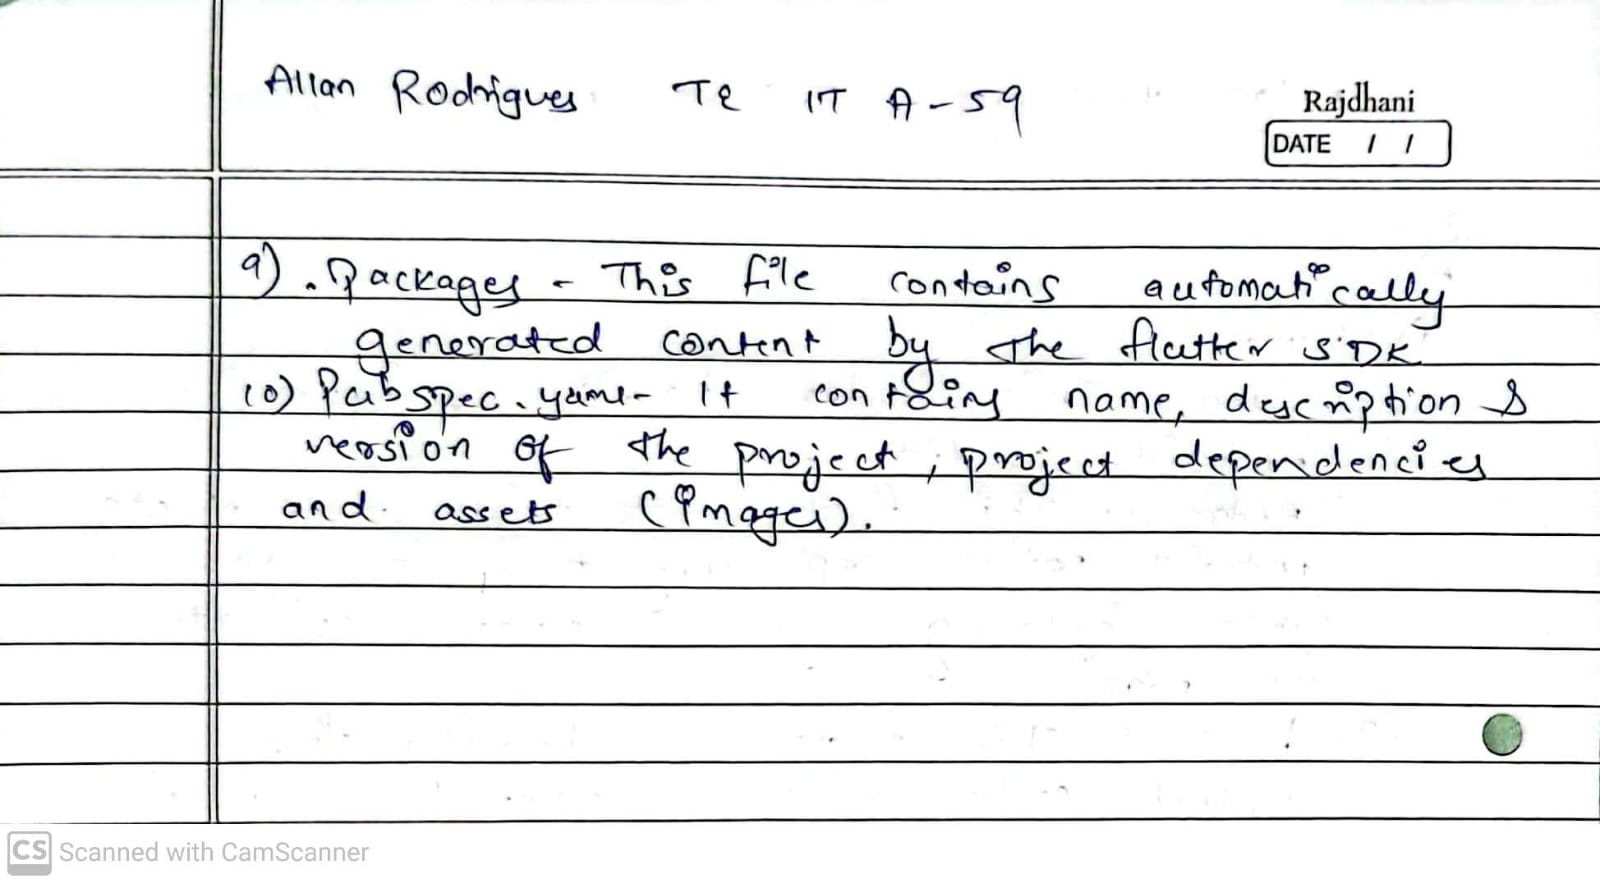 Allan Rodrigues TE IT A-59
Rajdhani
DATE / /
9) .Packages - This file contains automatically
generated content by the flutter SDK
10) Pubspec.yaml- It contains name, description &
version of the project, project dependencies
and assets (images).
CS Scanned with CamScanner